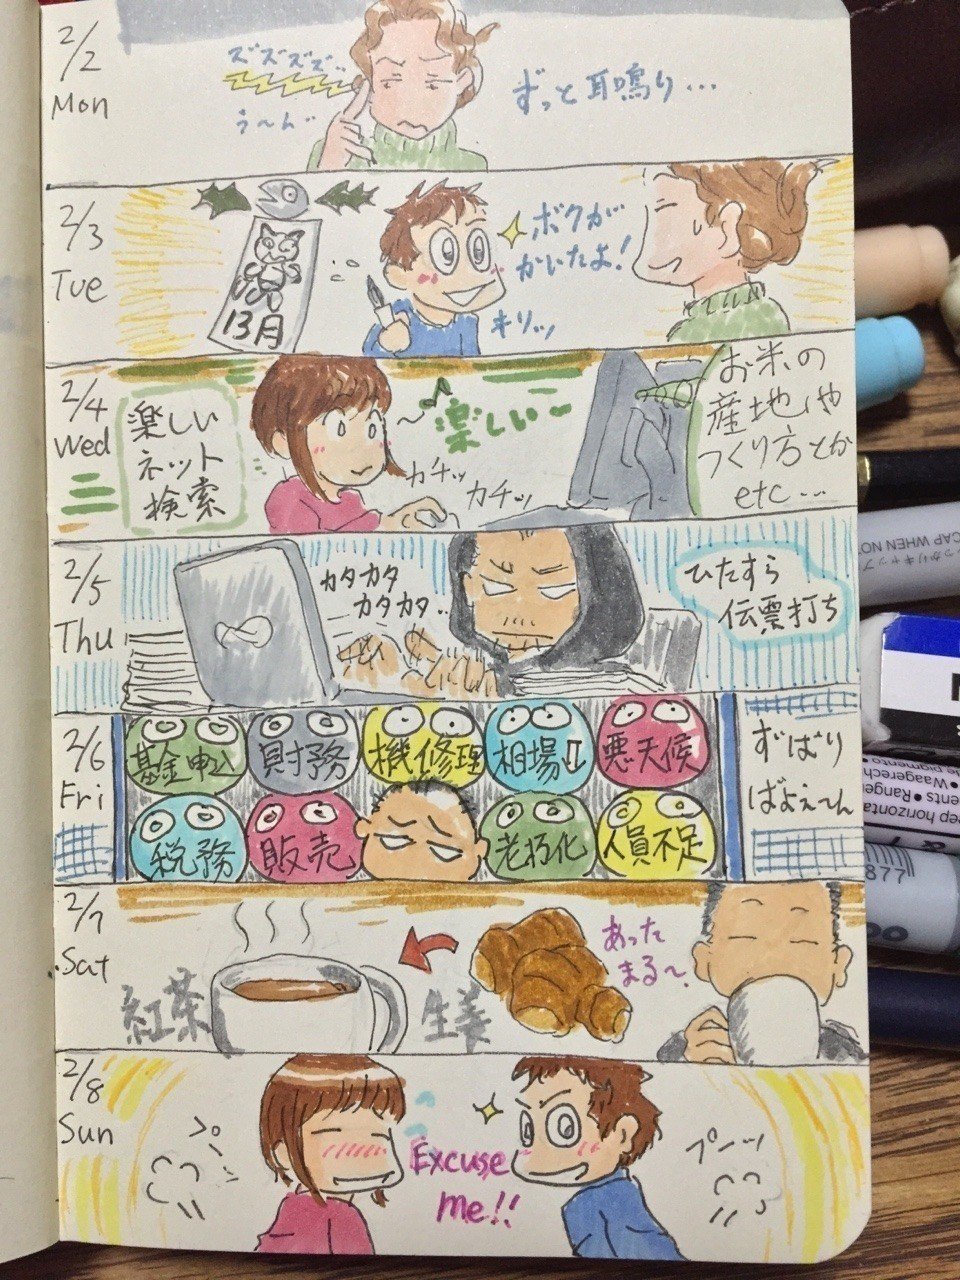 2/2
Mon
ズズズズ..
う〜ん..
ずっと耳鳴り...
2/3
Tue
13月
ボクが
かいたよ!
キリッ
2/4
Wed
楽しい
ネット
検索
楽しい〜
カチッ
カチッ
お米の
産地や
つくり方とか
etc...
2/5
Thu
カタカタ
カタカタ..
ひたすら
伝票打ち
2/6
Fri
基金申込
財務
機修理
相場II
悪天候
税務
販売
老朽化
人員不足
ずばり
ばよえ〜ん
2/7
Sat
紅茶
生姜
あった
まる〜
2/8
Sun
プッ
Excuse
me!!
プーンッ
CAP WHEN NO
しっかりキャップ
eep horizonta
Waagerech
ents・Ranger
877